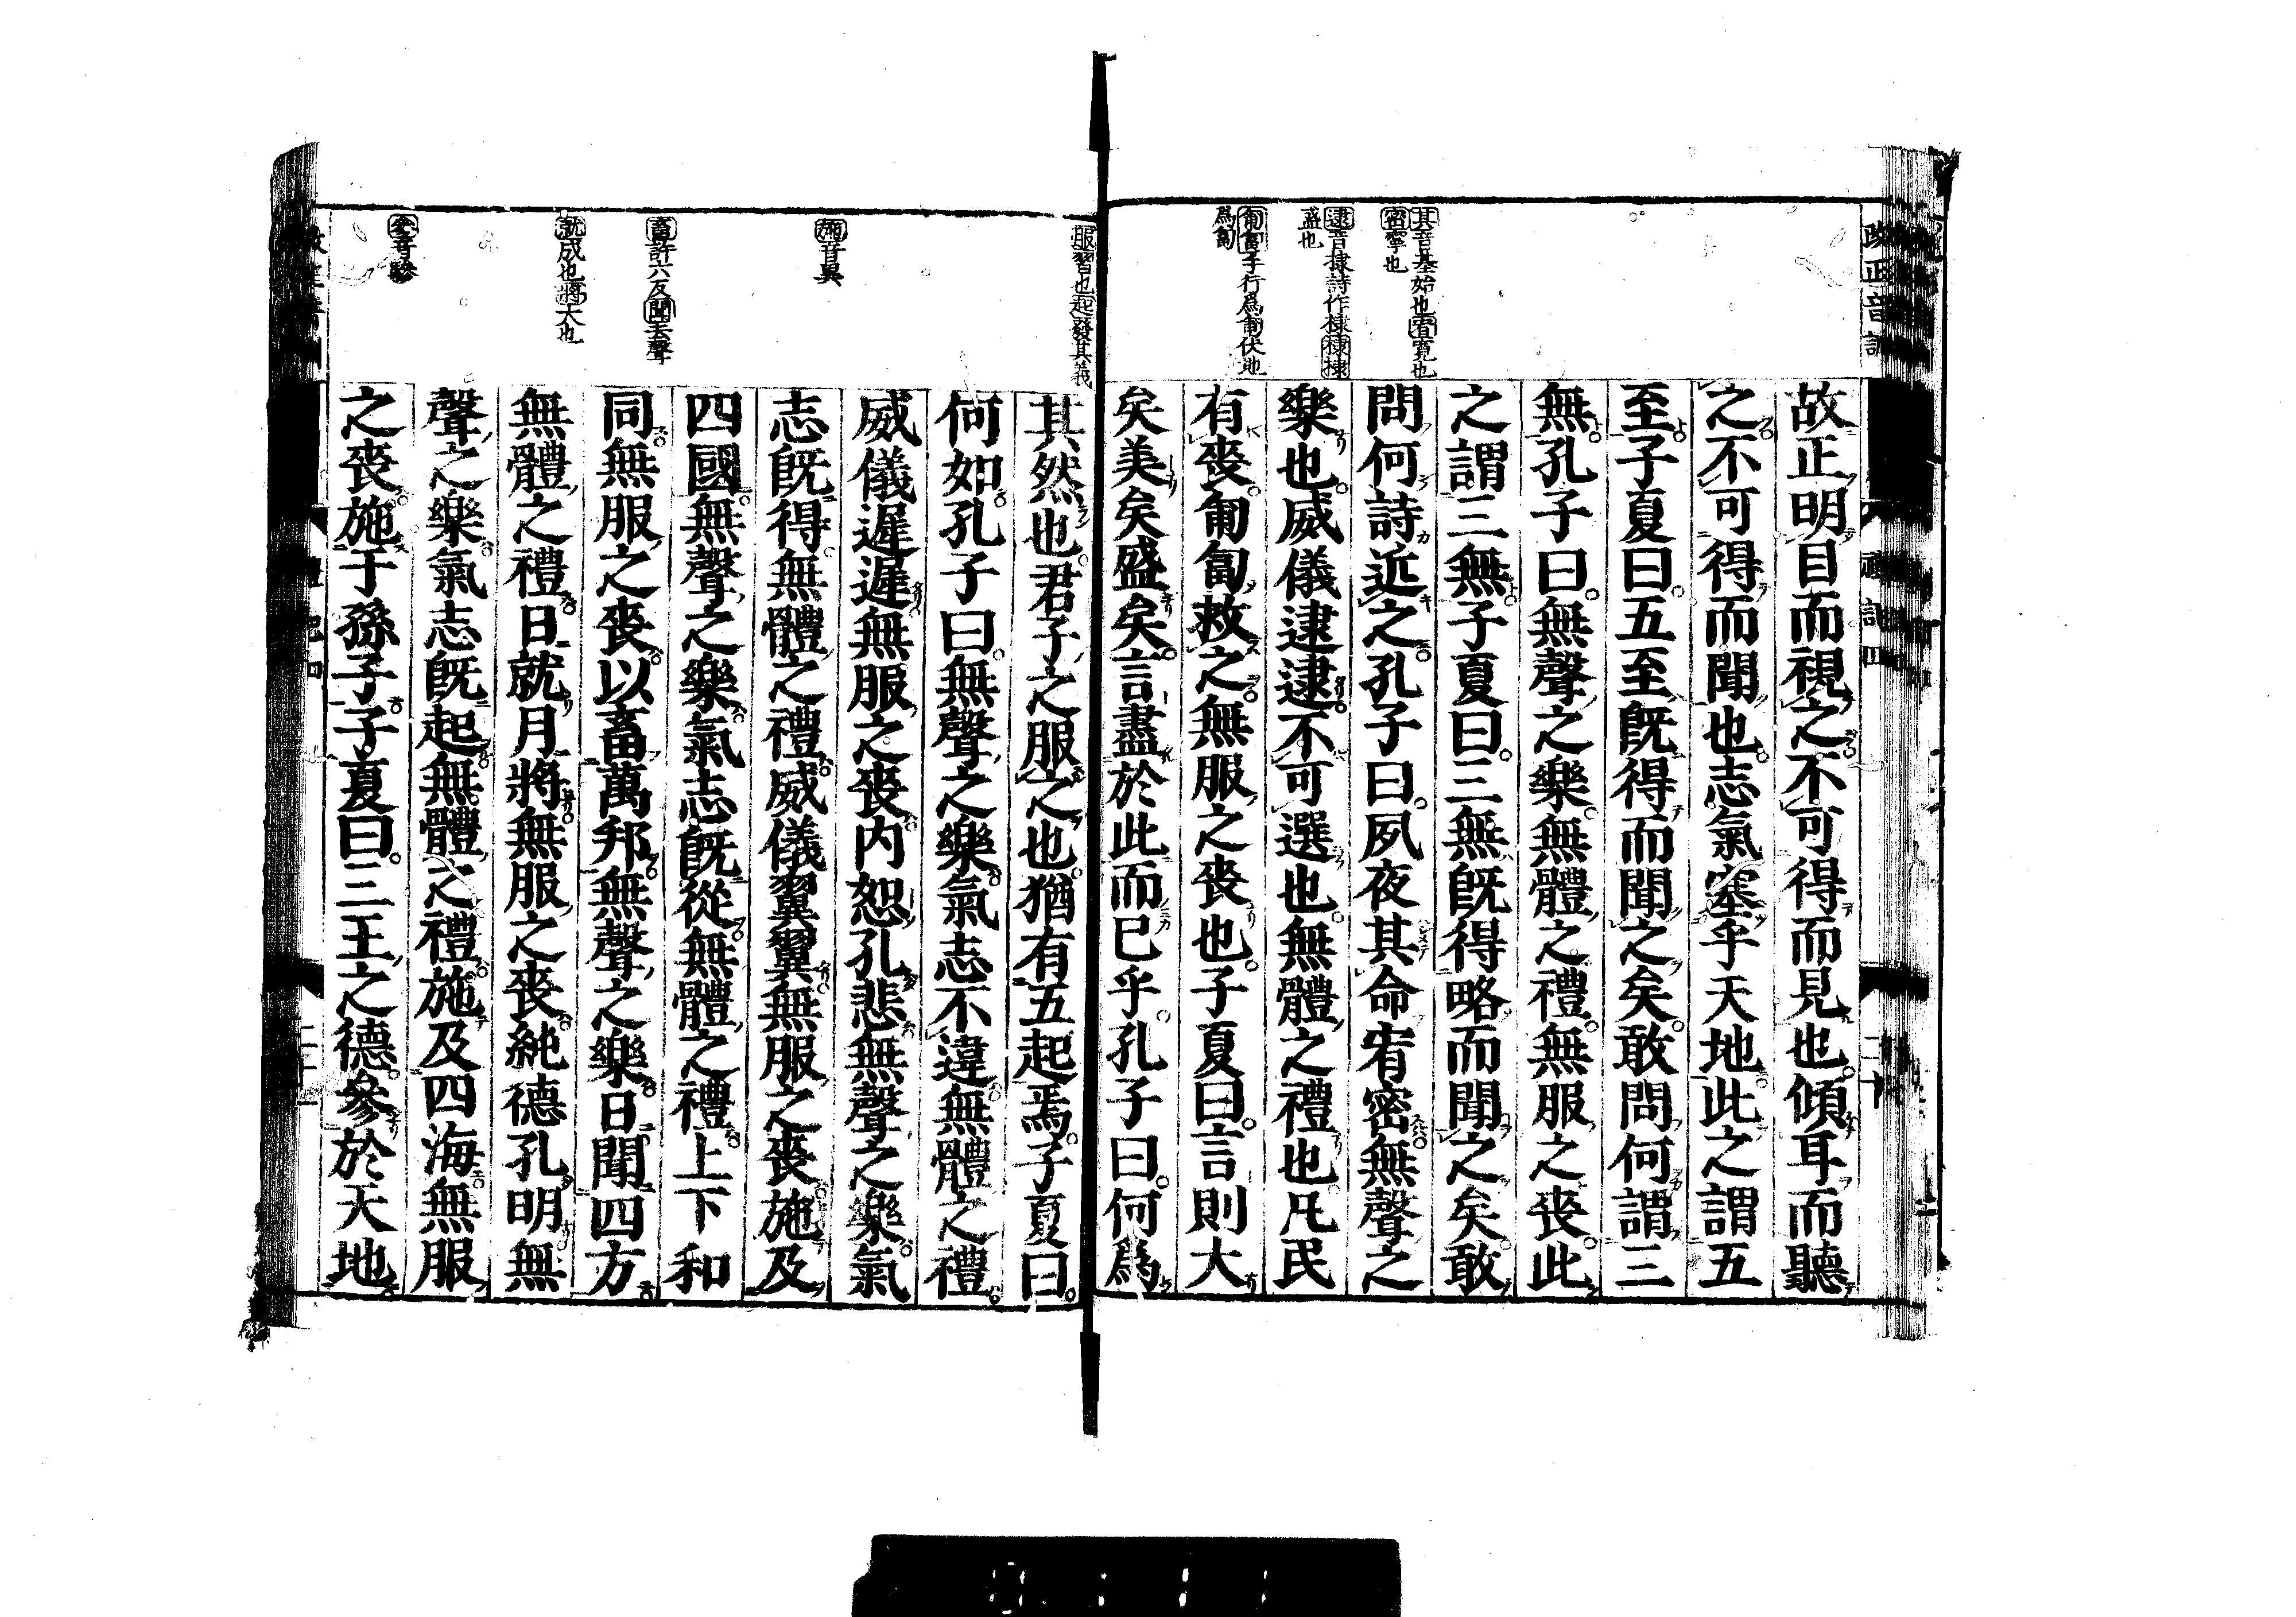 其音基始也宥寛也
密寧也
逮音棣詩作棣棣棣
盛也
匍匐手行爲匍伏地
爲匐
故正明目而視之不可得而見也傾耳而聽
之不可得而聞也志氣塞乎天地此之謂五
至子夏曰五至既得而聞之矣敢問何謂三
無孔子曰無聲之樂無體之禮無服之喪此
之謂三無子夏曰三無既得略而聞之矣敢
問何詩近之孔子曰夙夜其命宥密無聲之
樂也威儀逮逮不可選也無體之禮也凡民
有喪匍匐救之無服之喪也子夏曰言則大
矣美矣盛矣言盡於此而已乎孔子曰何爲
服習也起發其義
施音異
畜許六反聞去聲
就成也將大也
參音驂
其然也君子之服之也猶有五起焉子夏曰
何如孔子曰無聲之樂氣志不違無體之禮
威儀遲遲無服之喪内恕孔悲無聲之樂氣
志既得無體之禮威儀翼翼無服之喪施及
四國無聲之樂氣志既從無體之禮上下和
同無服之喪以畜萬邦無聲之樂日聞四方
無體之禮日就月將無服之喪純德孔明無
聲之樂氣志既起無體之禮施及四海無服
之喪施于孫子子夏曰三王之德參於天地